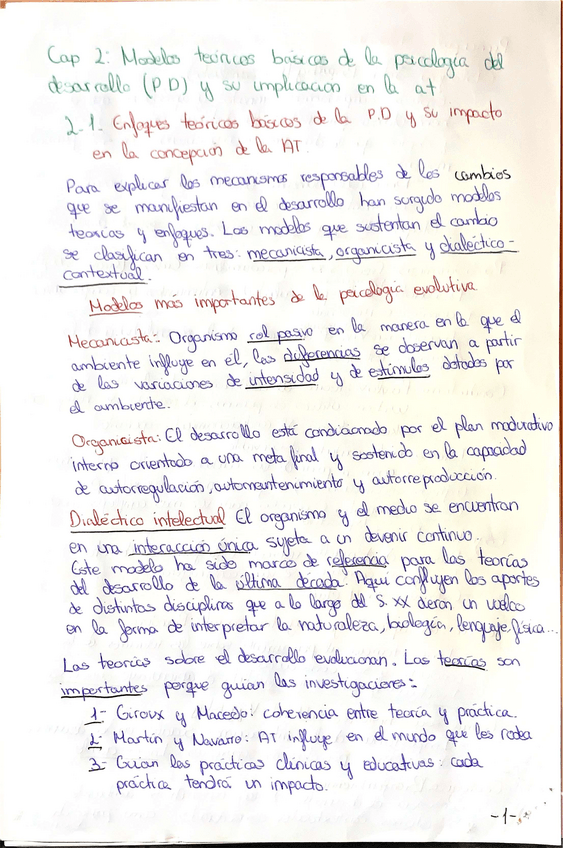 Cap 2: Modelos teóricos básicos de la psicología del
desarrollo (PD) y su implicación en la at
2.1. Enfoques teóricos básicos de la P.D y su impacto
en la concepción de la AT.
Para explicar los mecanismos responsables de los cambios
que se manifiestan en el desarrollo han surgido modelos
teorías y enfoques. Los modelos que sustentan el cambio
se clasifican en tres: mecanicista, organicista y dialéctico-
contextual.
Modelos más importantes de la psicología evolutiva
Mecanicista:. Organismo rol pasivo en la manera en la que el
ambiente influye en él, las diferencias se observan a partir
de las variaciones de intensidad y de estímulos dotados por
el ambiente.
Organicista: El desarrollo está condicionado por el plan madurativo
interno orientado a una meta final y sostenido en la capacidad
de autorregulación, automantenimiento y autorreproducción.
Dialéctico intelectual El organismo y el medio se encuentran
en una interacción única sujeta a un devenir continuo.
Este modelo ha sido marco de referencia para las teorías
del desarrollo de la última década. Aquí confluyen los aportes
de distintas disciplinas que a lo largo del S. XX dieron un vuelco
en la forma de interpretar la naturaleza, biología, lenguaje, física...
Las teorías sobre el desarrollo evolucionan. Las teorías son
importantes porque guian las investigaciones:-
1- Giroux y Macedo: coherencia entre teoría y práctica.
2- Martín y Navarro: AT influye en el mundo que les rodea
3- Guian las prácticas clínicas y educativas: cada
práctica tendrá un impacto.
-1-